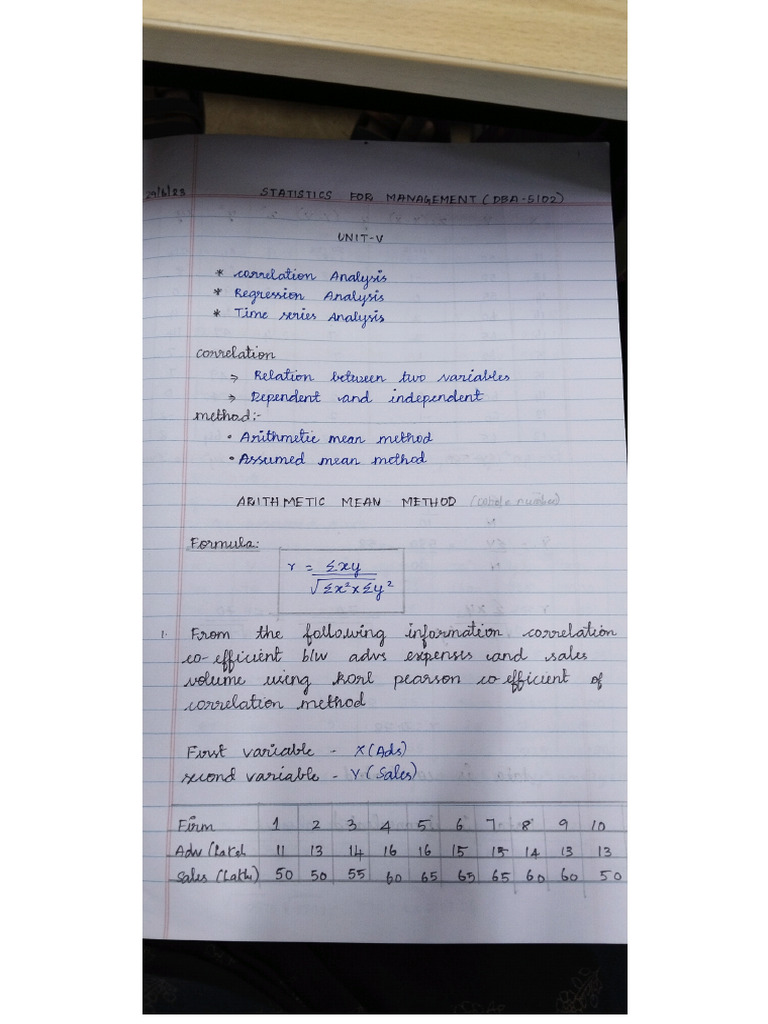 29/6/23 STATISTICS FOR MANAGEMENT (DBA-5102)
UNIT-V
* correlation Analysis
* Regression Analysis
* Time series Analysis
correlation
⇒ Relation between two variables
⇒ Dependent and independent
method:-
• Arithmetic mean method
• Assumed mean method
ARITHMETIC MEAN METHOD (whole number)
Formula:
r = Σxy
√Σx²xΣy²
1. From the following information correlation
co-efficient b/w advs expenses and sales
volume using karl pearson co-efficient of
correlation method
First variable - X(Ads)
second variable - Y(Sales)
Firm 1 2 3 4 5 6 7 8 9 10
Adv (Lakh) 11 13 14 16 16 15 15 14 13 13
Sales (Lakhs) 50 50 55 60 65 65 65 60 60 50